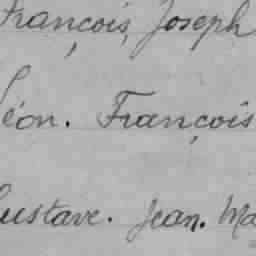 François, Joseph
Léon. François
Gustave. Jean. Ma